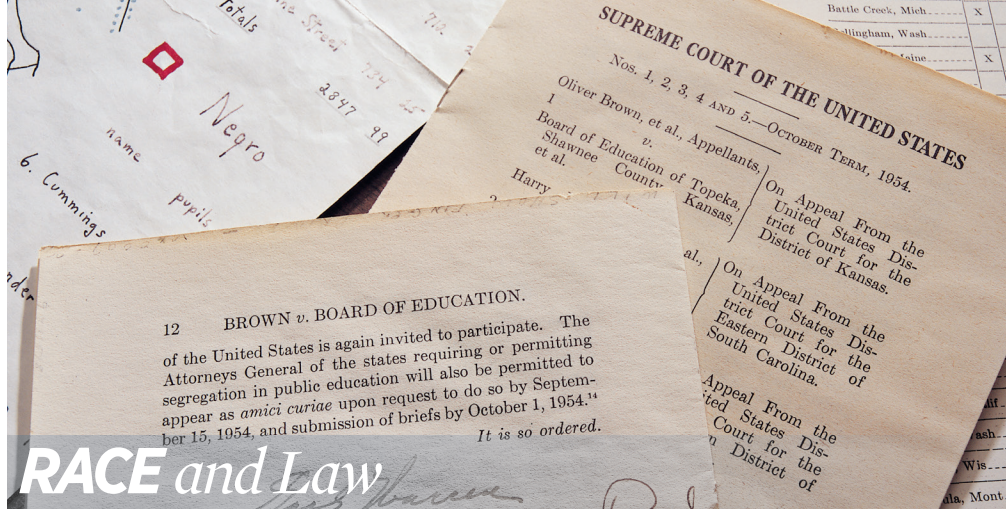 Totals
734
2847 99
Negro
name
6. Cummings
pupils
nder
Battle Creek, Mich
ellingham, Wash
Maine
X
X
SUPREME COURT OF THE UNITED STATES
Nos. 1, 2, 3, 4 AND 5.—OCTOBER TERM, 1954.
Oliver Brown, et al., Appellants,
1
v.
Board of Education of Topeka,
Shawnee County, Kansas,
et al.
On Appeal From the
United States Dis-
trict Court for the
District of Kansas.
Harry
2
al.,
On Appeal From the
United States Dis-
trict Court for the
Eastern District of
South Carolina.
Appeal From the
ited States Dis-
Court for the
n District of
ash
Wis
ula, Mont
12 BROWN v. BOARD OF EDUCATION.
of the United States is again invited to participate. The
Attorneys General of the states requiring or permitting
segregation in public education will also be permitted to
appear as amici curiae upon request to do so by Septem-
ber 15, 1954, and submission of briefs by October 1, 1954.¹⁴
It is so ordered.
Earl Warren
RACE and Law